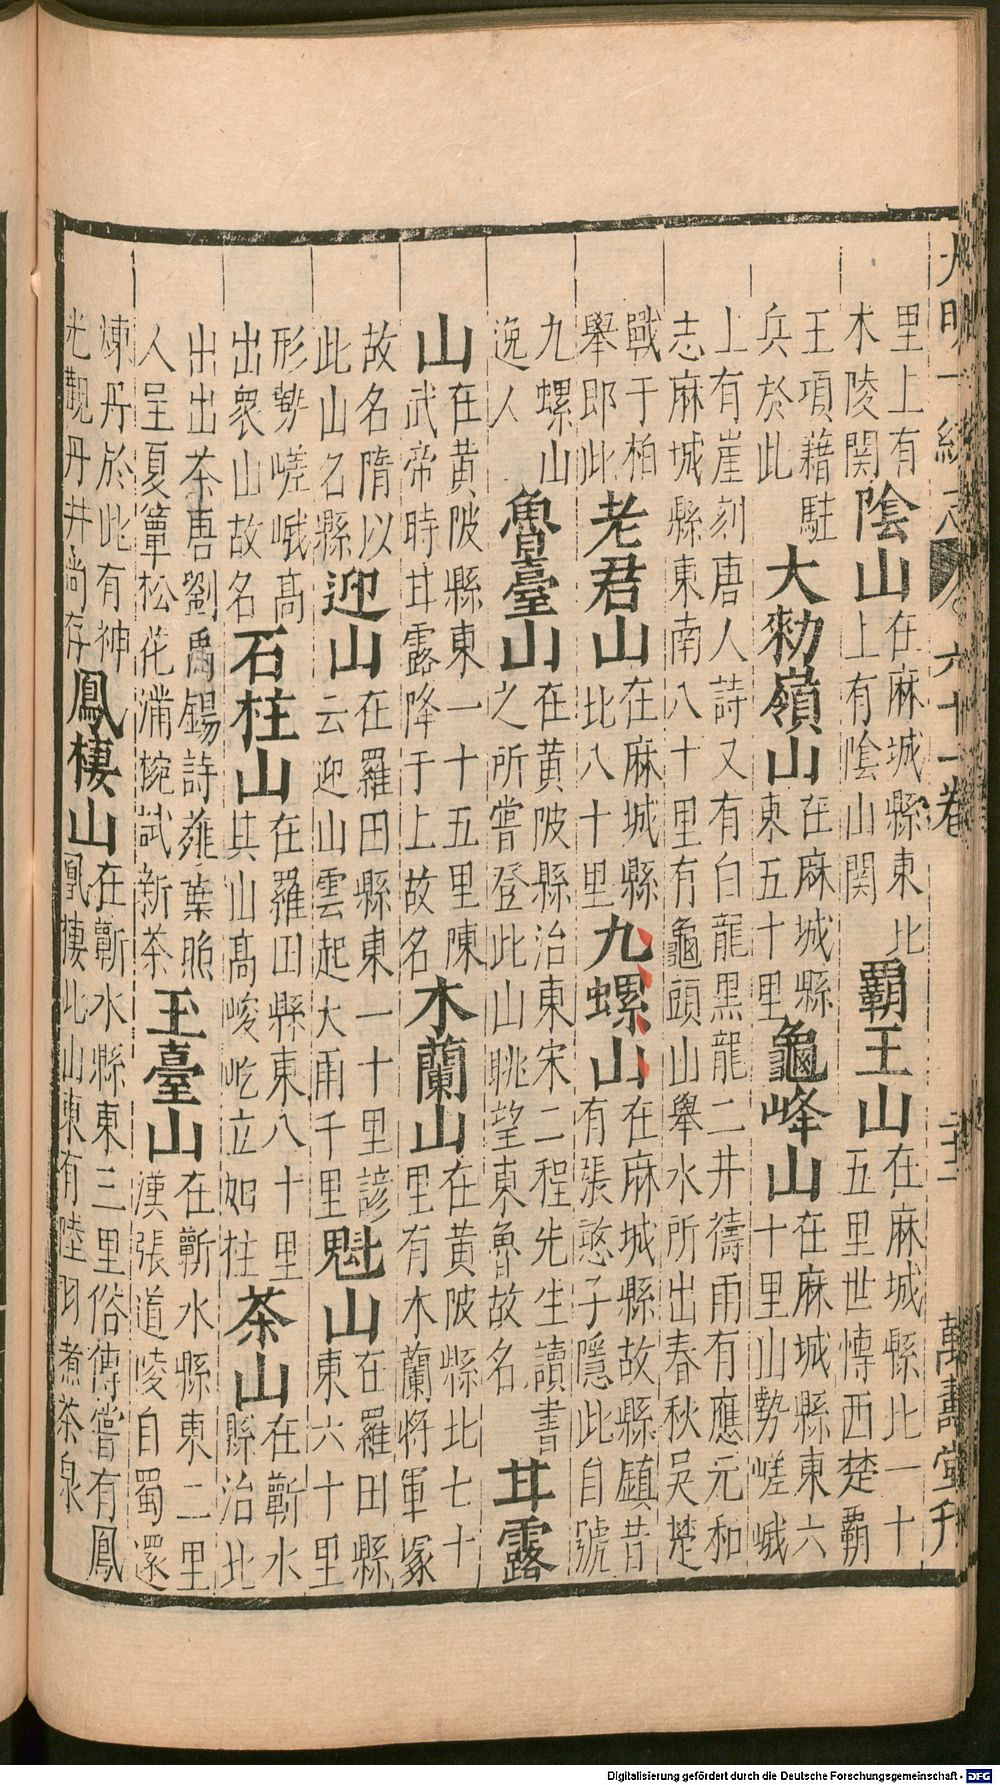 大明一統志 六十一卷 萬壽堂刊
里上有木陵關陰山在麻城縣東北上有陰山關霸王山在麻城縣北一十五里世傳西楚霸
王項籍駐兵於此大勑嶺山在麻城縣東五十里龜峰山在麻城縣東六十里山勢嵯峨
上有崖刻唐人詩又有白龍黑龍二井禱雨有應元和志麻城縣東南八十里有龜頭山舉水所出春秋吳楚
戰于柏舉即此老君山在麻城縣北八十里九螺山在麻城縣故縣鎮昔有張憨子隱此自號
九螺山逸人魯臺山在黃陂縣治東宋二程先生讀書之所嘗登此山眺望東魯故名甘露
山在黃陂縣東一十五里陳武帝時甘露降于上故名木蘭山在黃陂縣北七十里有木蘭將軍塚
故名隋以此山名縣迎山在羅田縣東一十里諺云迎山雲起大雨千里魁山在羅田縣東六十里
形勢嵯峨高出衆山故名石柱山在羅田縣東八十里其山高峻屹立如柱茶山在蘄水縣治北
出出茶唐劉禹錫詩薤葉照人呈夏簟松花滿椀試新茶玉臺山在蘄水縣東二里漢張道陵自蜀還
煉丹於此有神光觀丹井尚存鳳棲山在蘄水縣東三里俗傳嘗有鳳凰棲此山東有陸羽煮茶泉
Digitalisierung gefördert durch die Deutsche Forschungsgemeinschaft - DFG